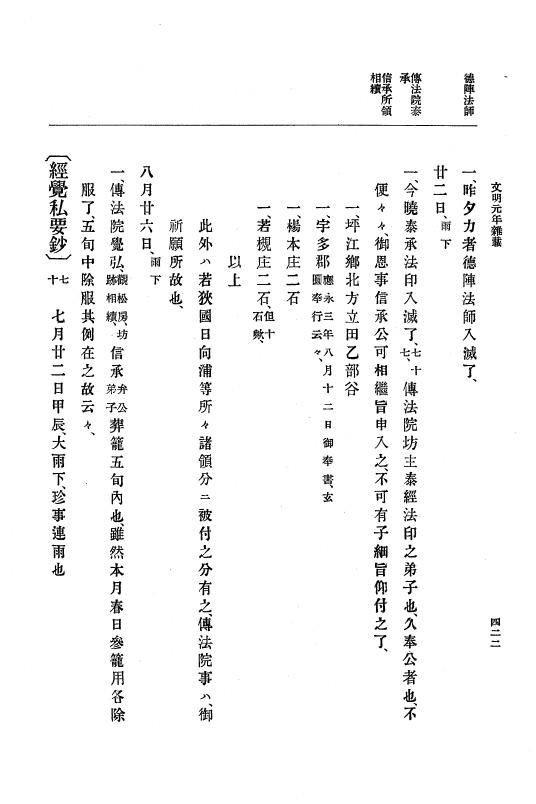 文明元年雜載
四二二
德陣法師
傳法院泰
承
信承所領
相續
一、昨夕力者德陣法師入滅了、
廿二日、雨下
一、今曉泰承法印入滅了、七十七、傳法院坊主泰經法印之弟子也、久奉公者也、不
便々々、御恩事信承公可相繼旨申入之、不可有子細旨仰付之了、
一、坪江鄕北方立田乙部谷
一、宇多郡應永三年八月十二日御奉書、玄圓奉行云々、
一、楊本庄二石
一、若槻庄二石、但十石歟、
以上
此外ハ若狹國日向浦等所々諸領分ニ被付之分有之、傳法院事ハ、御
祈願所故也、
八月廿六日、雨下
一、傳法院覺弘、觀松房、坊跡相續、信承弁公弟子葬籠五旬內也、雖然本月春日參籠用各除
服了五旬中除服其例在之故云々、
〔經覺私要鈔〕七十 七月廿二日甲辰、大雨下、珍事連雨也